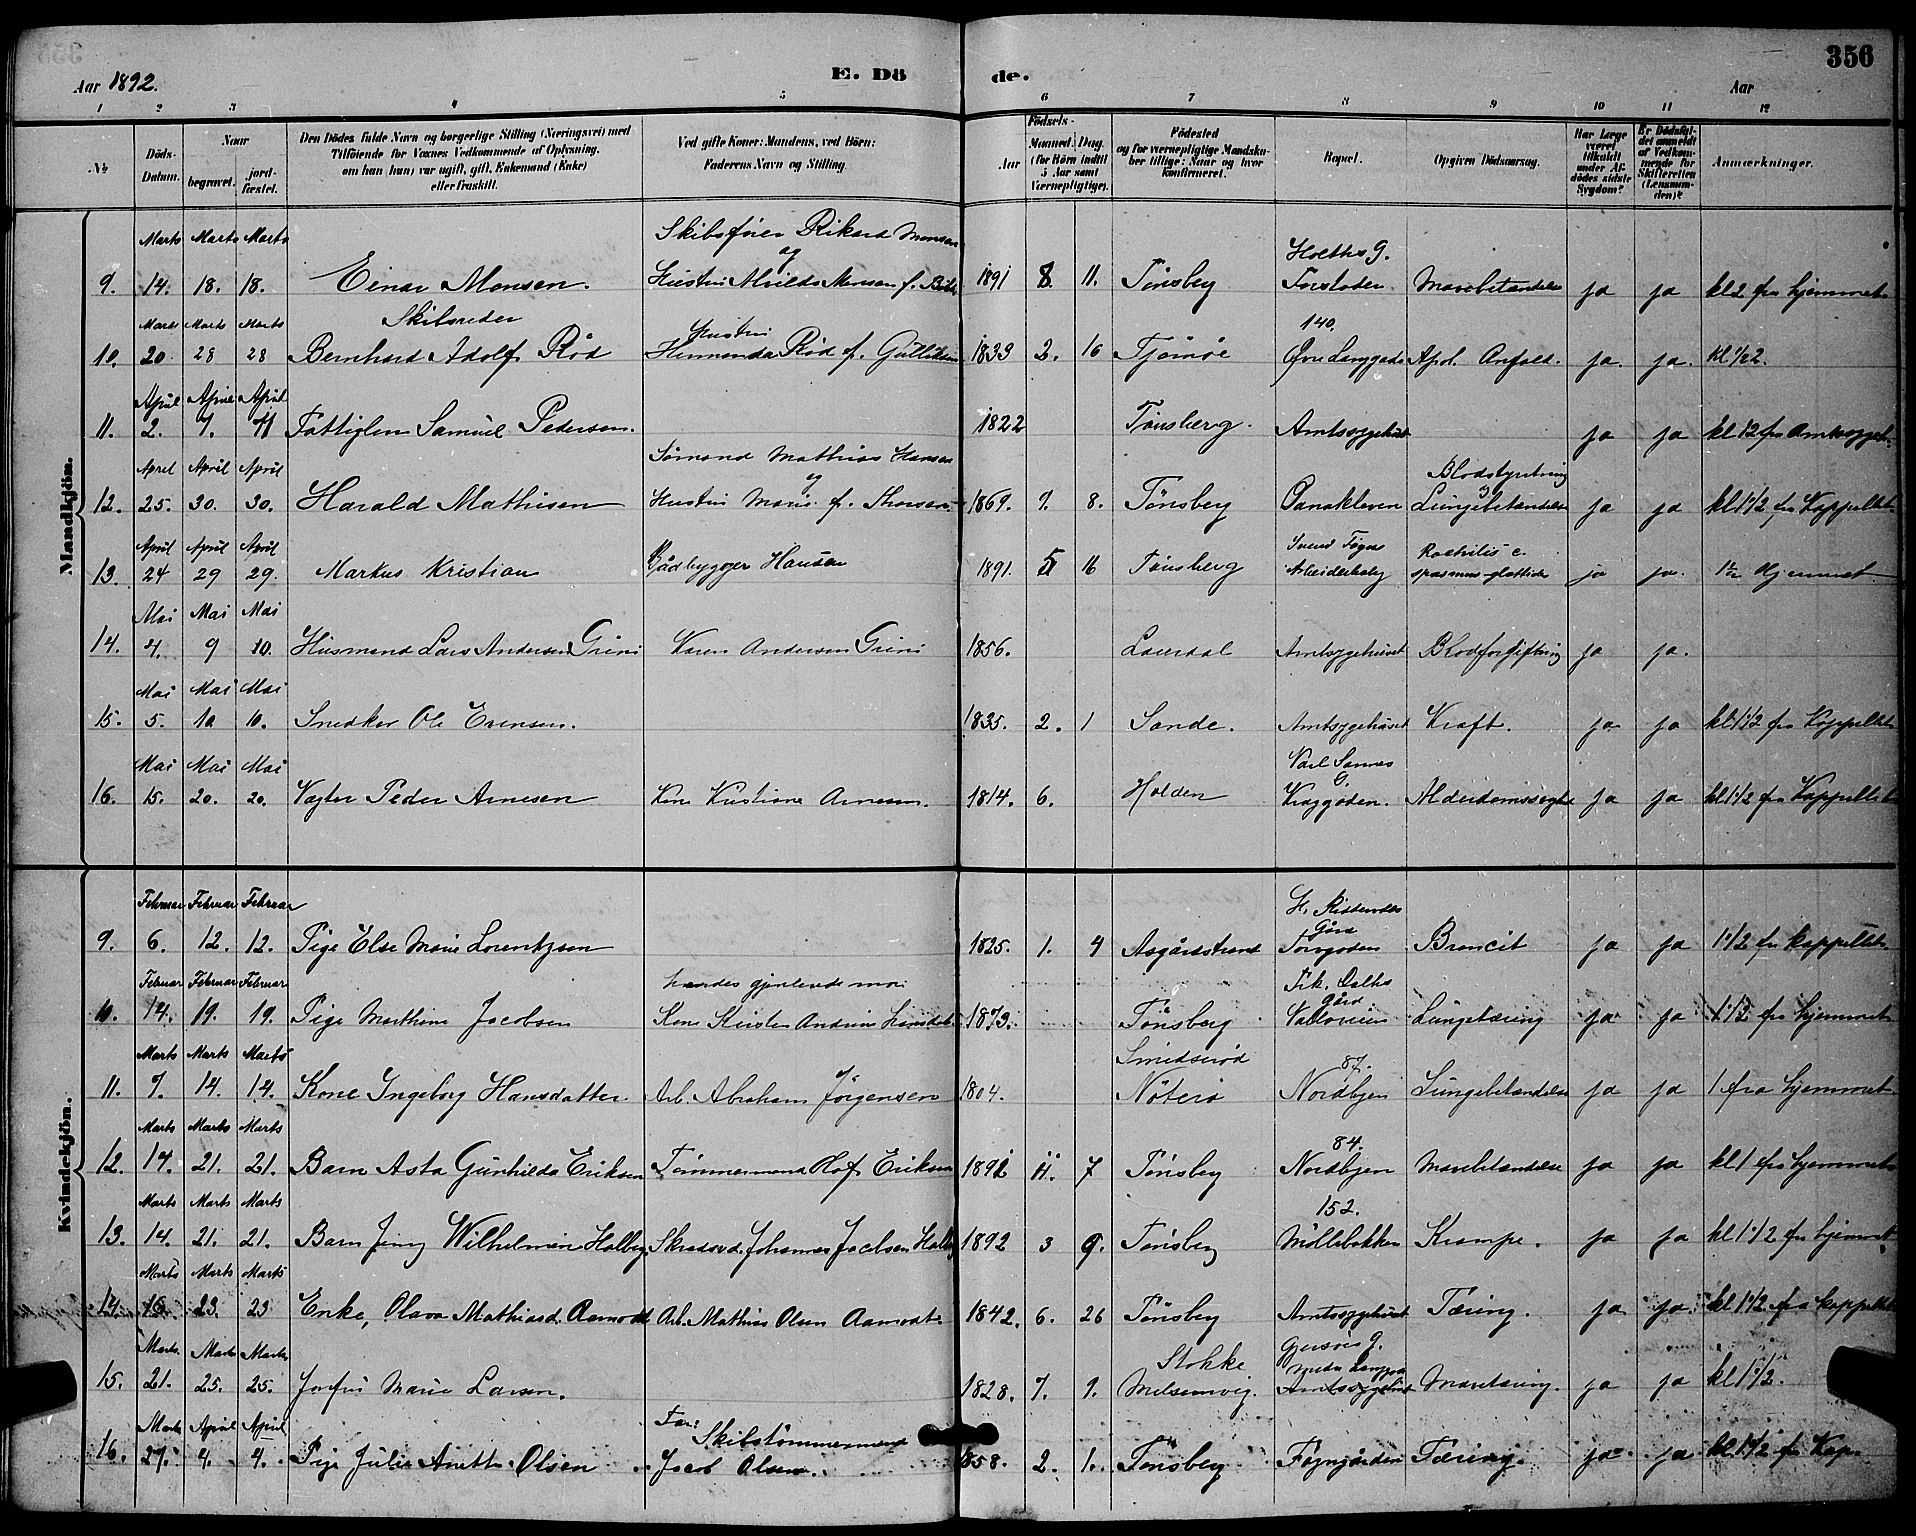 356
Aar 1892.
E. Dö de.
Aar
1 2 3 4 5 6 7 8 9 10 11 12
№
Döds-Datum.
Naar
begravet.
jord-fæstet.
Den Dödes fulde Navn og borgerlige Stilling (Næringsvei) med
Tilföiende for Voxnes Vedkommende af Oplysning,
om han (hun) var ugift, gift, Enkemand (Enke)
eller fraskilt.
Ved gifte Koner: Mandens, ved Börn:
Faderens Navn og Stilling.
Födsels-
Aar
Maaned. Dag.
(for Börn indtil
5 Aar samt
Værnepligtige).
Födested
og for værnepligtige Mandskaber tillige: Naar og hvor konfirmeret.
Bopæl.
Opgiven Dödsaarsag.
Har Læge været tilkaldt under Afdödes sidste Sygdom?
Er Dödsfaldet anmeldt af Vedkommende for Skifteretten (Lensmanden)?
Anmærkninger.
Mandkjön.
Marts Marts Marts Skibsfører Rikard Monsen
og Holths G.
9. 14. 18. 18. Einar Monsen. Hustru Alvilde Monsen f. 1891 8. 11. Tönsberg Torvloden Mavebetændelse ja ja kl 2 fra hjemmet
Marts Marts Marts Skibsreder Hustru 140.
10. 20. 28 28 Bernhard Adolf Röd Hermanda Röd f. Gulliksen 1833 2. 16 Tjömöe Øvre Langgade Apol. Anfald. ja. ja. kl 1/2 2.
April April April
11. 2. 7. 11 Fattiglem Samuel Pedersen. 1822 Tönsberg. Amtssygehuset ja ja kl 12 fra Amtssygeh.
April April April Sømand Mathias Hansen Blodstyrtning
og
12. 25. 30. 30. Harald Mathisen Hustru Marie f. Thorsen 1869. 7. 8. Tönsberg Banakleven Lungebetændelse ja ja kl 1 1/2 fra Kappellet
April April April Svend Föyns Rachitis c.
13. 24 29 29. Markus Kristian Bådbygger Hansen 1891. 5 16 Tönsberg Arbeiderbolig spasmus glottidis ja ja. 1 1/2 Hjemmet
Mai Mai Mai
14. 4. 9 10. Husmand Lars Andersen Grini Karen Andersen Grini 1856. Laurdal Amtsygehuset Blodforgiftning ja ja.
Mai Mai Mai
15. 5. 10 10. Snedker Ole Evensen. 1835. 2. 1 Sande. Amtsygehuset Kræft. ja ja kl 1 1/2 fra Kappellet
Mai Mai Mai Karl Sannes
G.
16. 15. 20. 20. Vægter Peder Arnesen Kone Kristiane Arnesen. 1814. 6. Holden Kraggaden. Alderdomssvaghed ja ja kl 1 1/2 fra Kappellet
Kvindekjön.
Februar Februar Februar H. Kistendes
Gård
9. 6. 12. 12. Pige Else Marie Lorentzsen 1825. 1. 4 Aasgårdstrand Torvgaden Broncit ja ja 1 1/2 fra kappellet
Februar Februar Februar hendes gjenlevende mor: Frk. Dalhs
gård.
10. 14. 19. 19. Pige Marthine Jacobsen Kone Kirsten Andrine 1873. Tönsberg Valloveien Lungetæring ja ja 1 1/2 fra hjemmet
Marts Marts Marts Smidsröd 87.
11. 7. 14. 14. Kone Ingeborg Hansdatter Arb. Abraham Jörgensen 1804. Nöterö Nordbyen Lungebetændelse ja ja 1 fra hjemmet
Marts Marts Marts 84.
12. 14. 21. 21. Barn Asta Gunhilda Eriksen Tømmermand Olof Eriksen 1891 11. 7 Tönsberg Nordbyen Mavebetændelse ja ja kl 1 fra hjemmet
Marts Marts Marts 152.
13. 14. 21. 21. Barn Jenny Wilhelmine Holberg Skrædersvd. Johannes Jacobsen Holberg 1892 3 9. Tönsberg Möllebakken Krampe. ja ja kl 1 1/2 fra hjemmet
Marts Marts Marts
14. 16. 23. 23 Enke, Olava Mathiasd. Aamodt Arb. Mathias Olsen Aamodt 1842. 6. 26 Tönsberg Amtssygehuset Tæring. ja ja kl 1 1/2 fra kappellet
Marts. Marts Marts Stokke Gjersöes G.
Nedre Langgade
15. 21. 25. 25. Jomfru Marie Larsen. 1828. 7. 9. Melsomvig. Amtssygehuset Mavetæring. ja ja kl 1 1/2.
Marts April April Far: Skibstömmermand
16. 27. 4. 4. Pige Julie Anette Olsen Jacob Olsen. 1858. 2. 1. Tönsberg Föyngården Tæring. ja ja kl 1 1/2 fra Kap.